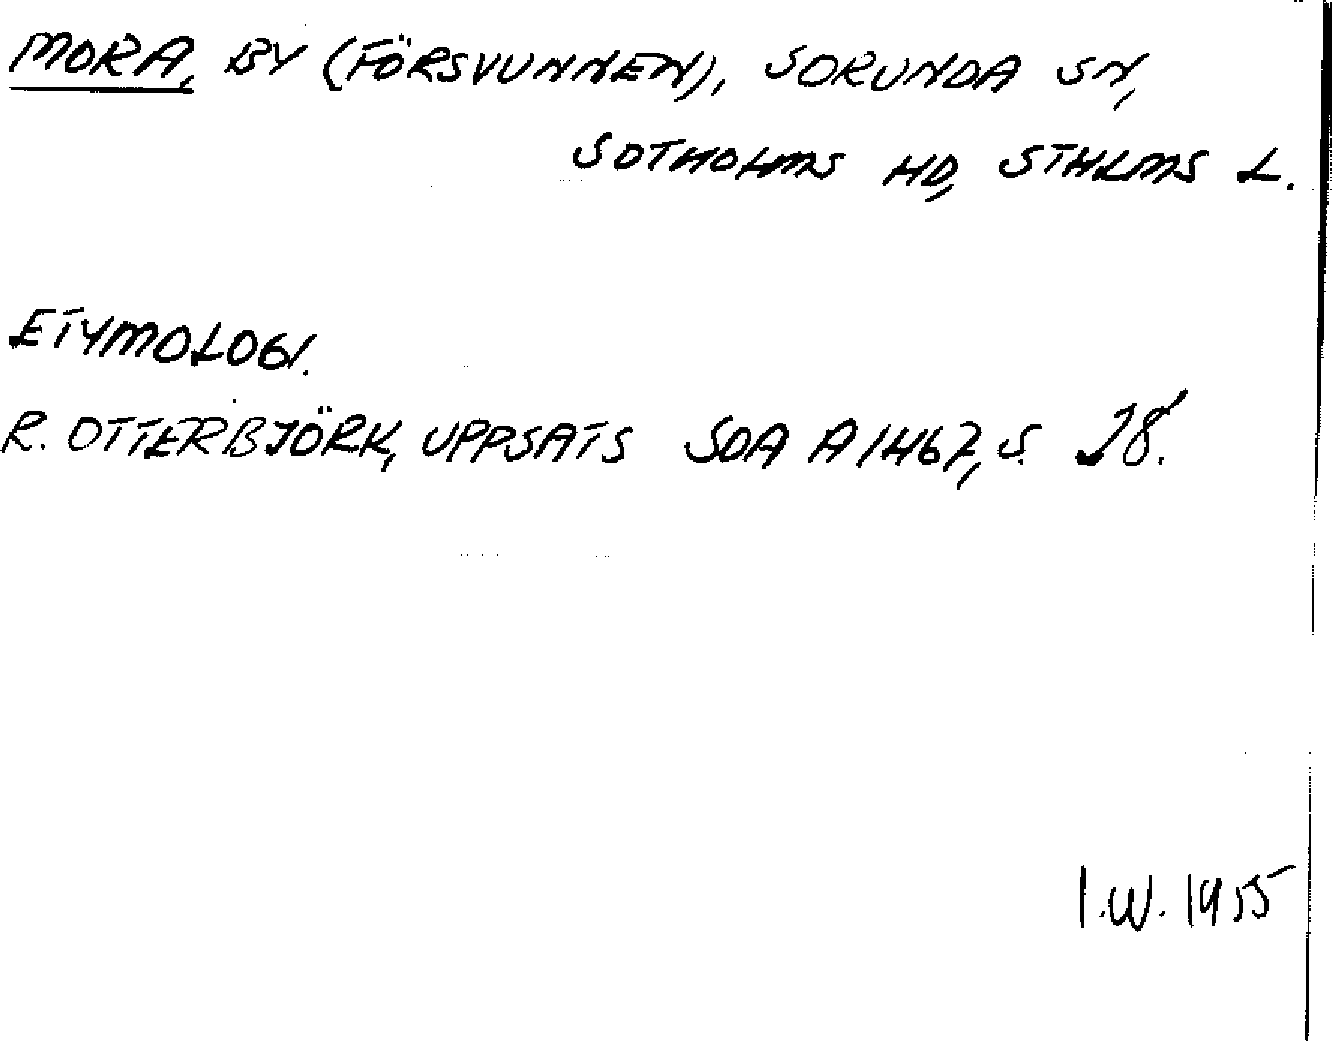 MORA, BY (FÖRSVUNNEN), SORUNDA SN,
SOTHOLMS HD, STHLMS L.
ETYMOLOGI.
R. OTTERBJÖRK, UPPSATS SOA A 1467, S. 28.
I.W. 1955